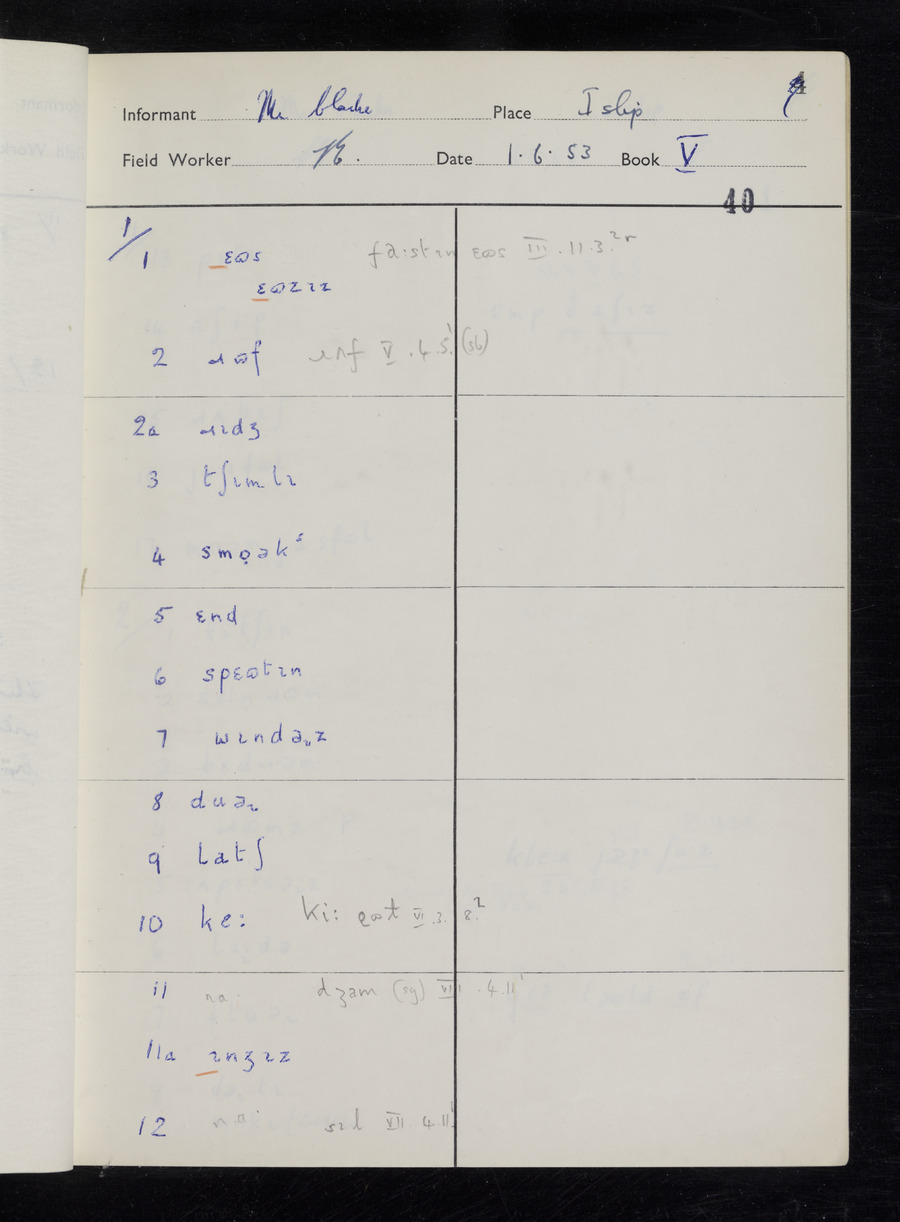 Informant Mr Place Islip
Field Worker Date 1.6.53 Book V
40
1/
1 ɛʊs fa:stɪn ɛʊs III.11.3.²ʳ
ɛʊzɪz
2 ɹʊf V.4.5.¹ (sb)
2a ɹɪdʒ
3 tʃɪmlɪ
4 smo̜əkˢ
5 ɛnd
6 spɛʊtɪn
7 wɪndəᵤz
8 duəɹ
9 latʃ
10 ke: ki: VI.3.8.²
11 na. dʒam (sg) VIII.4.11¹
11a ɪnʒɪz
12 sɪl VII 4.11.¹